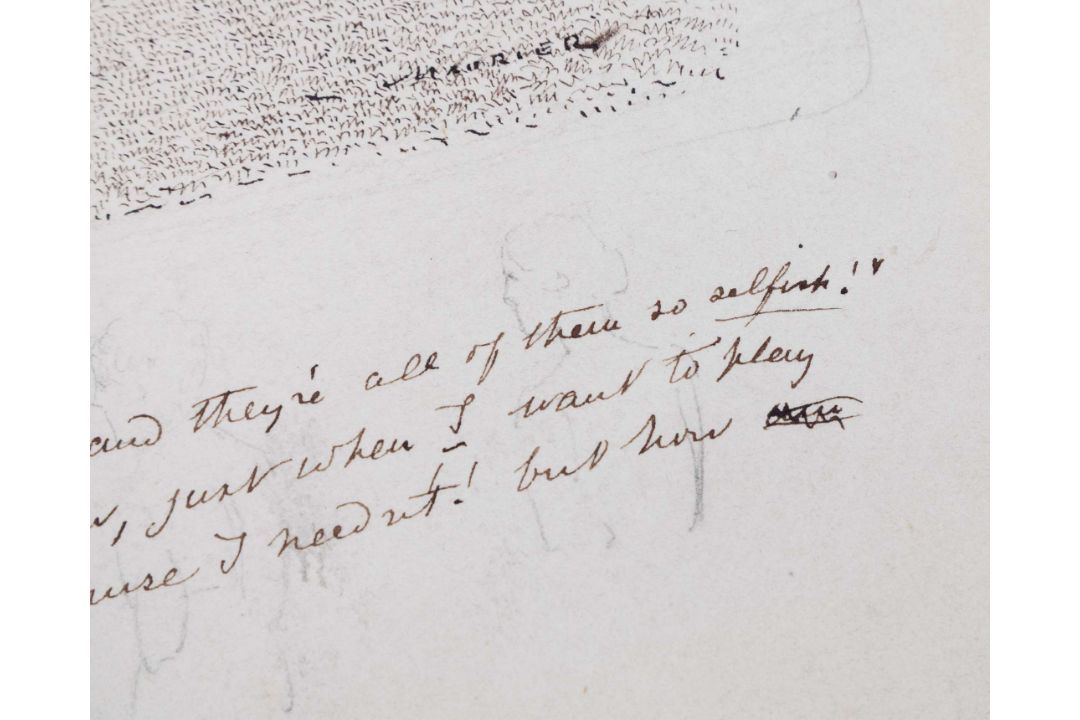 MAURIER
and they're all of them so selfish!"
, just when I want to play
I needn't! but how